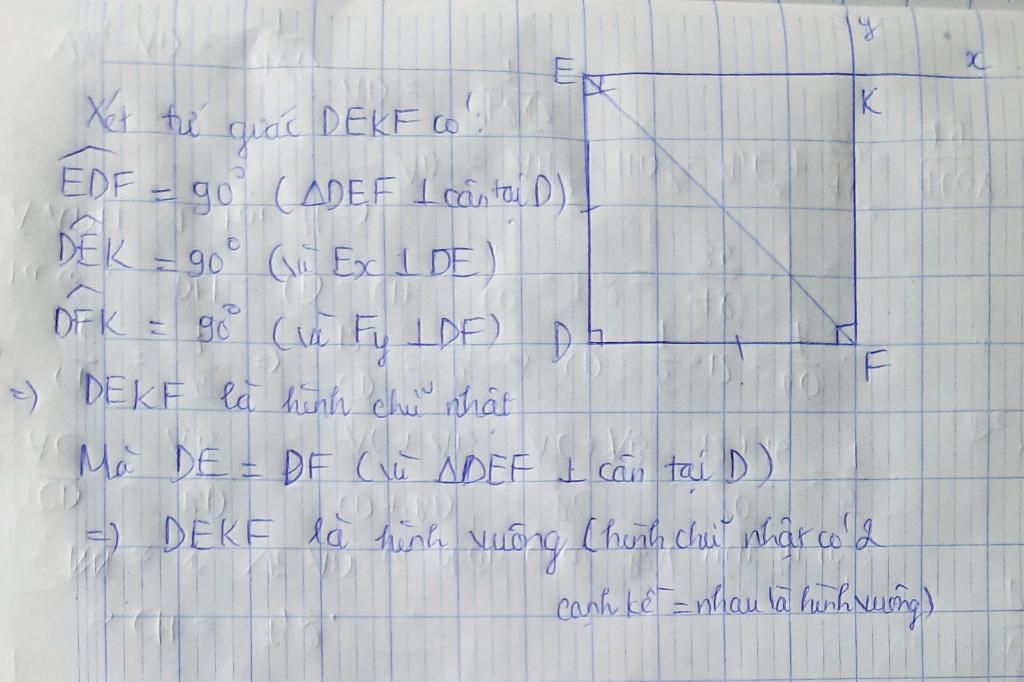 Xét tứ giác DEKF có:
EDF = 90° (ΔDEF ⊥ cân tại D)
DEK = 90° (vì Ex ⊥ DE)
DFK = 90° (vì Fy ⊥ DF)
=) DEKF là hình chữ nhật
Mà DE = DF (vì ΔDEF ⊥ cân tại D)
=) DEKF là hình vuông (hình chữ nhật có 2
cạnh kề = nhau là hình vuông)
y
E
x
K
D
F